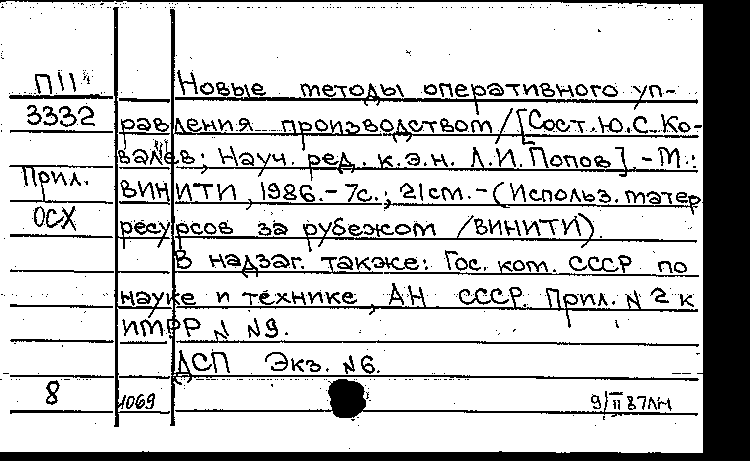 П11 Новые методы оперативного уп-
3332 равления производством/[Сост.Ю.С.Ко-
валев; Науч. ред. к.э.н. Л.И.Попов].-М.:
Прил. ВИНИТИ, 1986.-7с.; 21см.-(Использ.матер.
ОСХ ресурсов за рубежом /ВИНИТИ).
В надзаг. также: Гос. ком. СССР по
науке и технике, АН СССР. Прил. N 2 к
ИМРР N N9.
ДСП Экз. N6.
8 1069 9/II 87лн